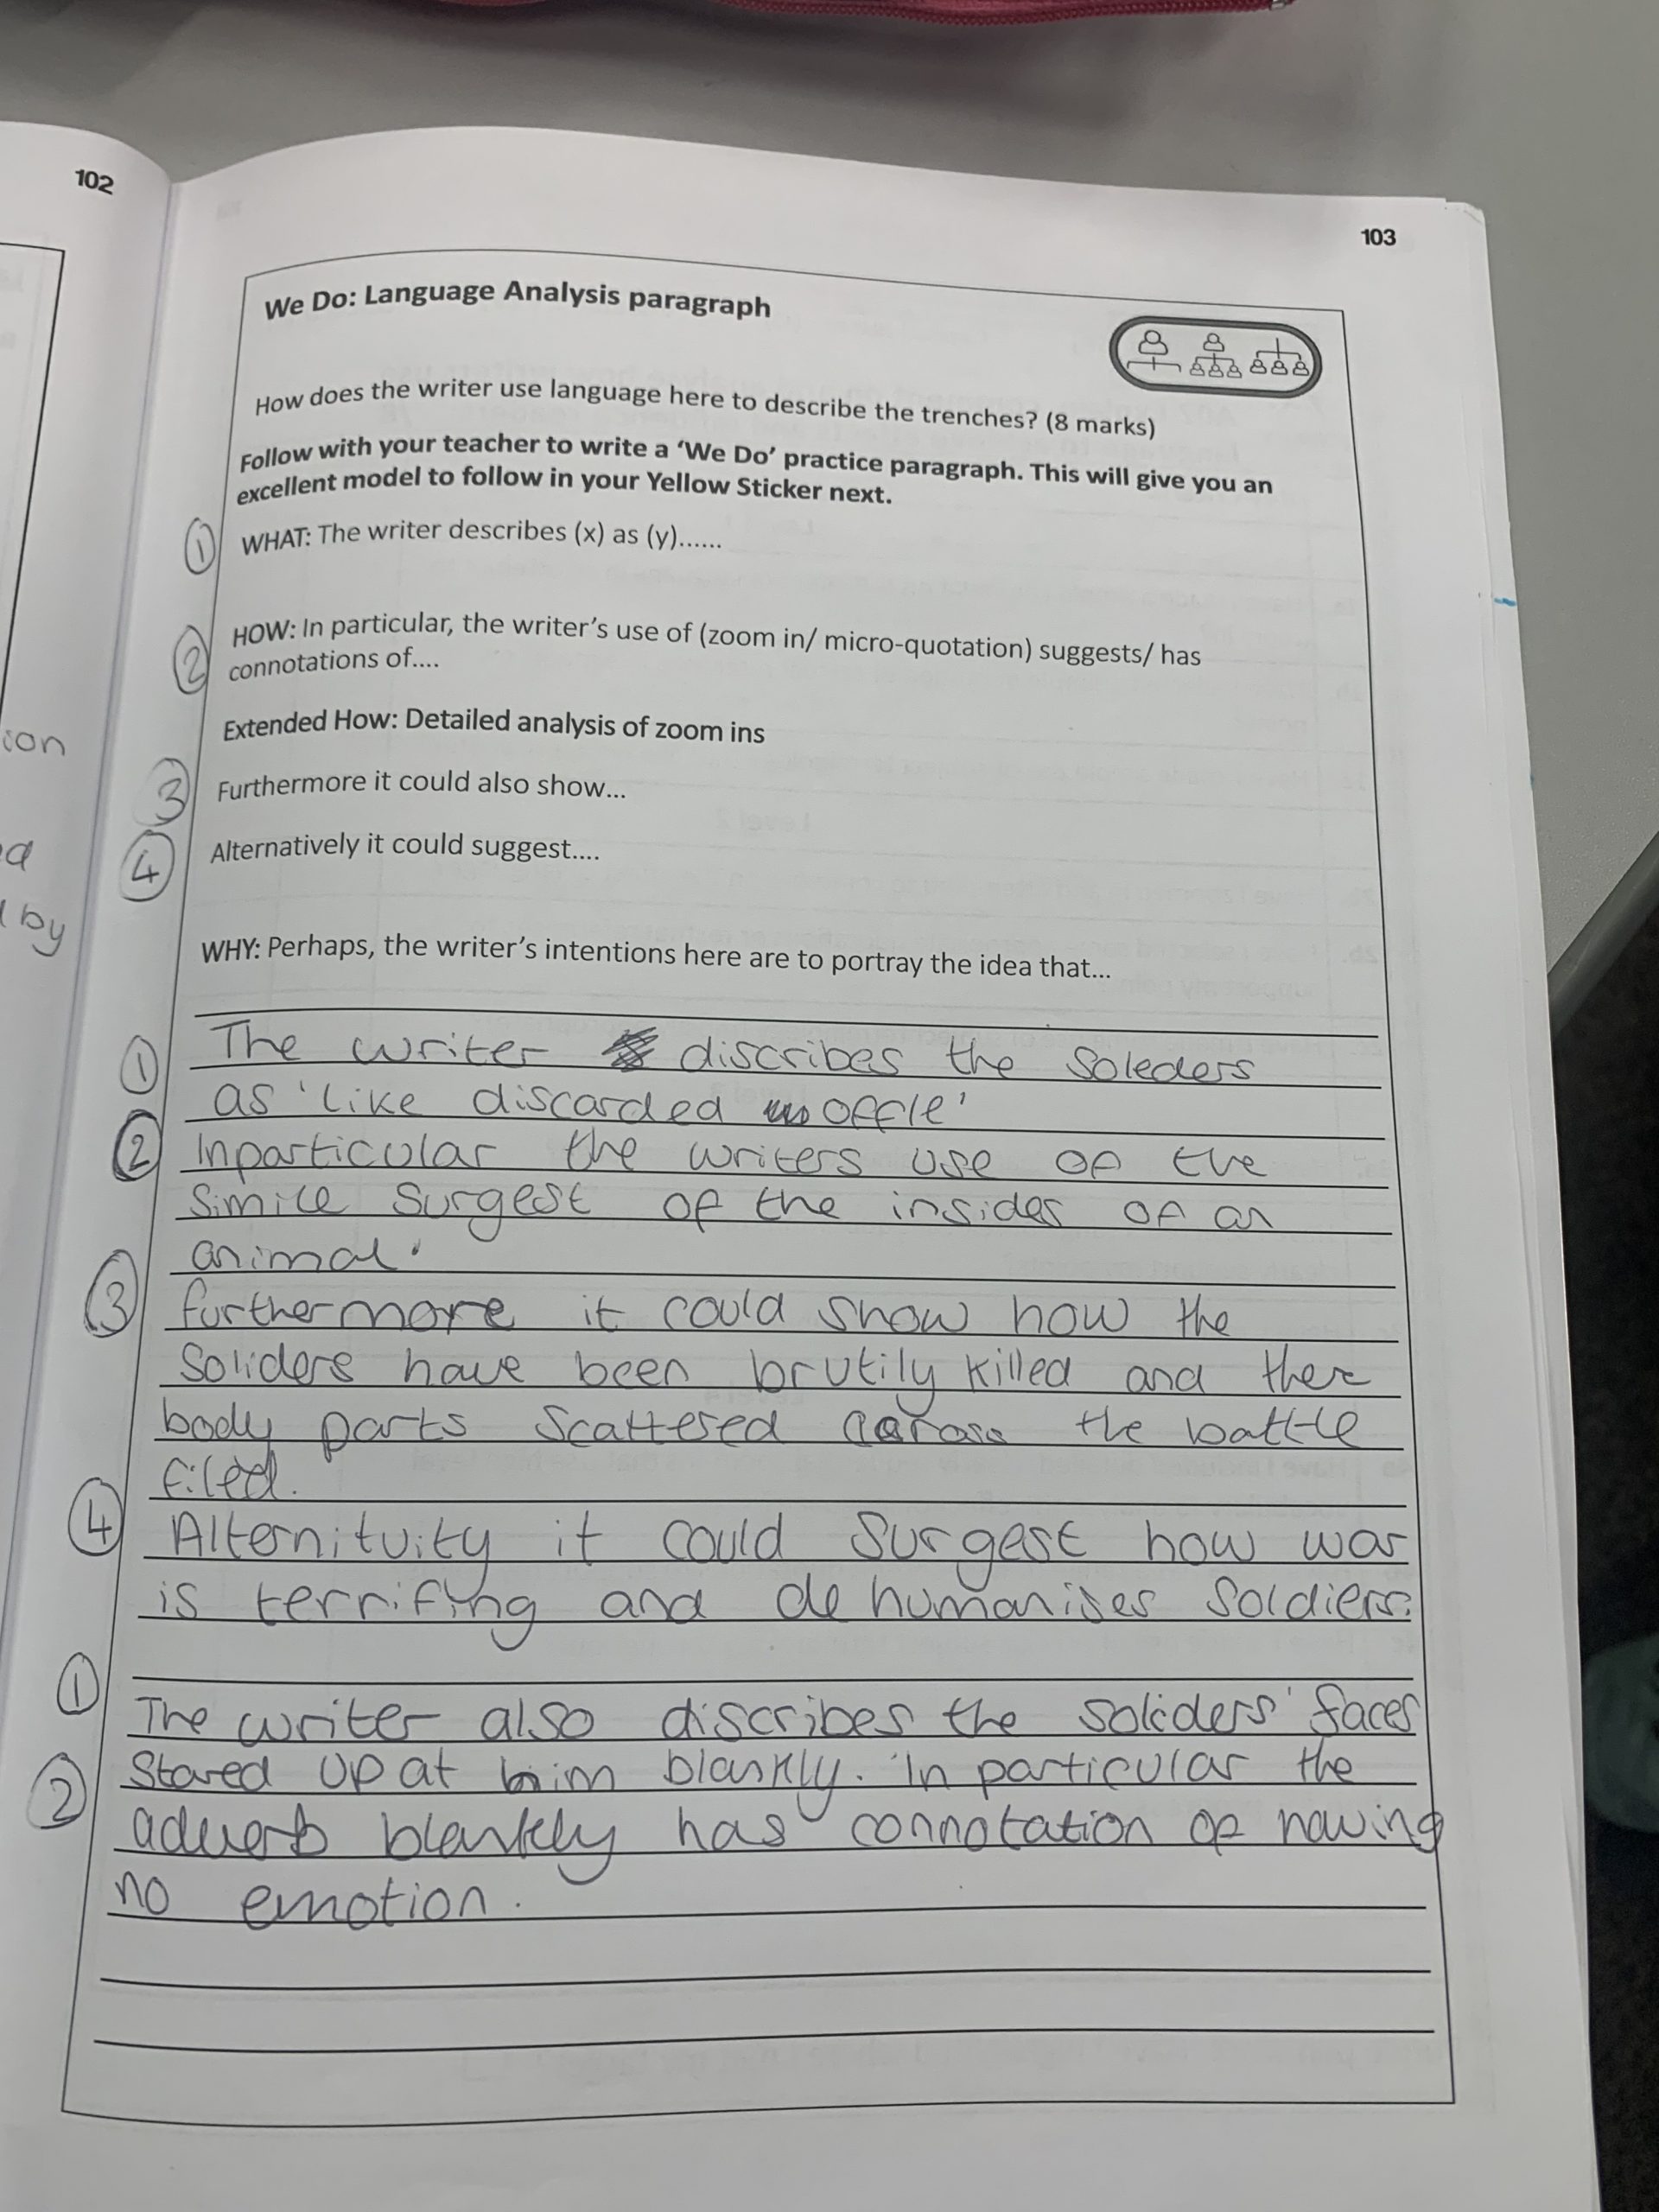 102
ion
d
by
103
We Do: Language Analysis paragraph
How does the writer use language here to describe the trenches? (8 marks)
Follow with your teacher to write a ‘We Do’ practice paragraph. This will give you an
excellent model to follow in your Yellow Sticker next.
① WHAT: The writer describes (x) as (y)......
② HOW: In particular, the writer’s use of (zoom in/ micro-quotation) suggests/ has
connotations of....
Extended How: Detailed analysis of zoom ins
③ Furthermore it could also show...
④ Alternatively it could suggest....
WHY: Perhaps, the writer’s intentions here are to portray the idea that...
① The writer discribes the soleders
as 'like discarded offle'
② Inparticular the writers use of the
simile surgest of the insides of an
animal.
③ furthermore it could show how the
soliders have been brutily killed and ther
body parts scattered across the battle
filed.
④ Alternituity it could surgest how war
is terrifing and dehumanises soldiers.
① The writer also discribes the soliders' faces
② Stared up at him blankly. In particular the
adverb blankely has connotation of having
no emotion.